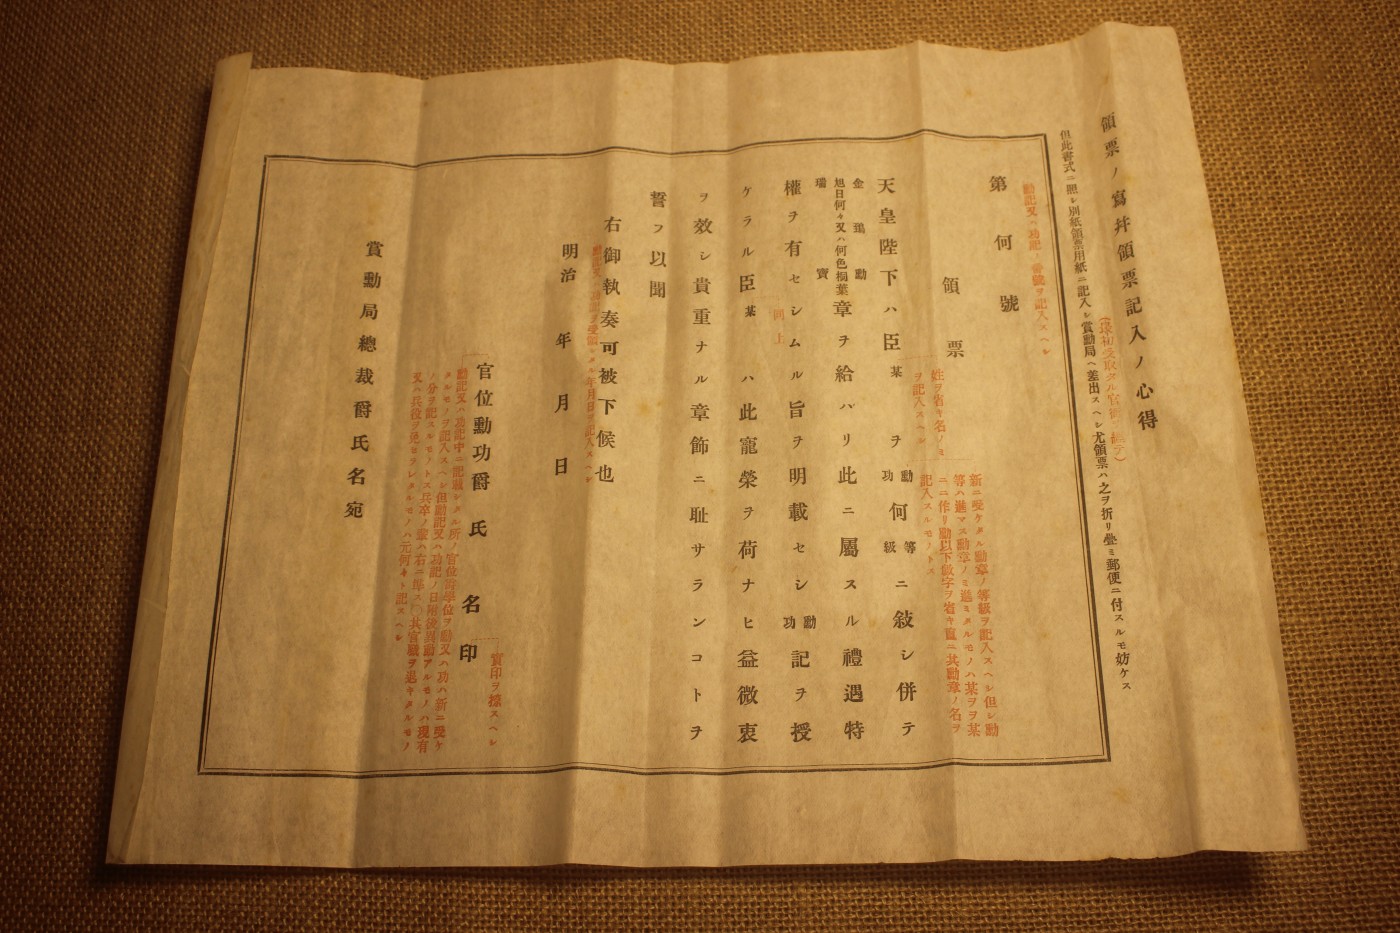 領票ノ寫幷領票記入ノ心得
但此書式ニ照シ別紙領票用紙ニ記入シ賞勳局ヘ差出スヘシ尤領票ハ之ヲ折リ疊ミ郵便ニ付スルモ妨ケス
勳記又ハ功記ノ番號ヲ記入スヘシ
第何號
領票
新ニ受ケタル勳章ノ等級ヲ記入スヘシ但シ勳
等ハ進マス勳章ノミ進ミタルモノハ某ヲヲ某
ニニ作リ勳以下級字ヲ省キ直ニ其勳章ノ名ヲ
記入スルモノトス
姓ヲ省キ名ノミ
ヲ記入スヘシ
天皇陛下ハ臣某ヲ勳功何等級ニ敍シ併テ
金鵄勳
旭日何々又ハ何色桐葉
瑞寶
章ヲ給ハリ此ニ屬スル禮遇特
權ヲ有セシムル旨ヲ明載セシ勳功記ヲ授
同上
ケラル臣某ハ此寵榮ヲ荷ナヒ益微衷
ヲ效シ貴重ナル章飾ニ耻サランコトヲ
誓フ以聞
右御執奏可被下候也
勳記又ハ功記ヲ受領シタル年月日ヲ記入スヘシ
明治年月日
實印ヲ捺スヘシ
官位勳功爵氏名印
勳記又ハ功記中ニ記載シタル所ノ官位爵學位ヲ勳又ハ功ハ新ニ受ケ
タルモノヲ記入スヘシ但勳記又ハ功記ノ日附後異動アルモノハ現有
ノ分ヲ記スルモノトス兵卒ノ輩ハ右ニ準ス其官職ヲ退キタルモノ
又ハ兵役ヲ免セラレタルモノハ元何々ト記スヘシ
賞勳局總裁爵氏名宛